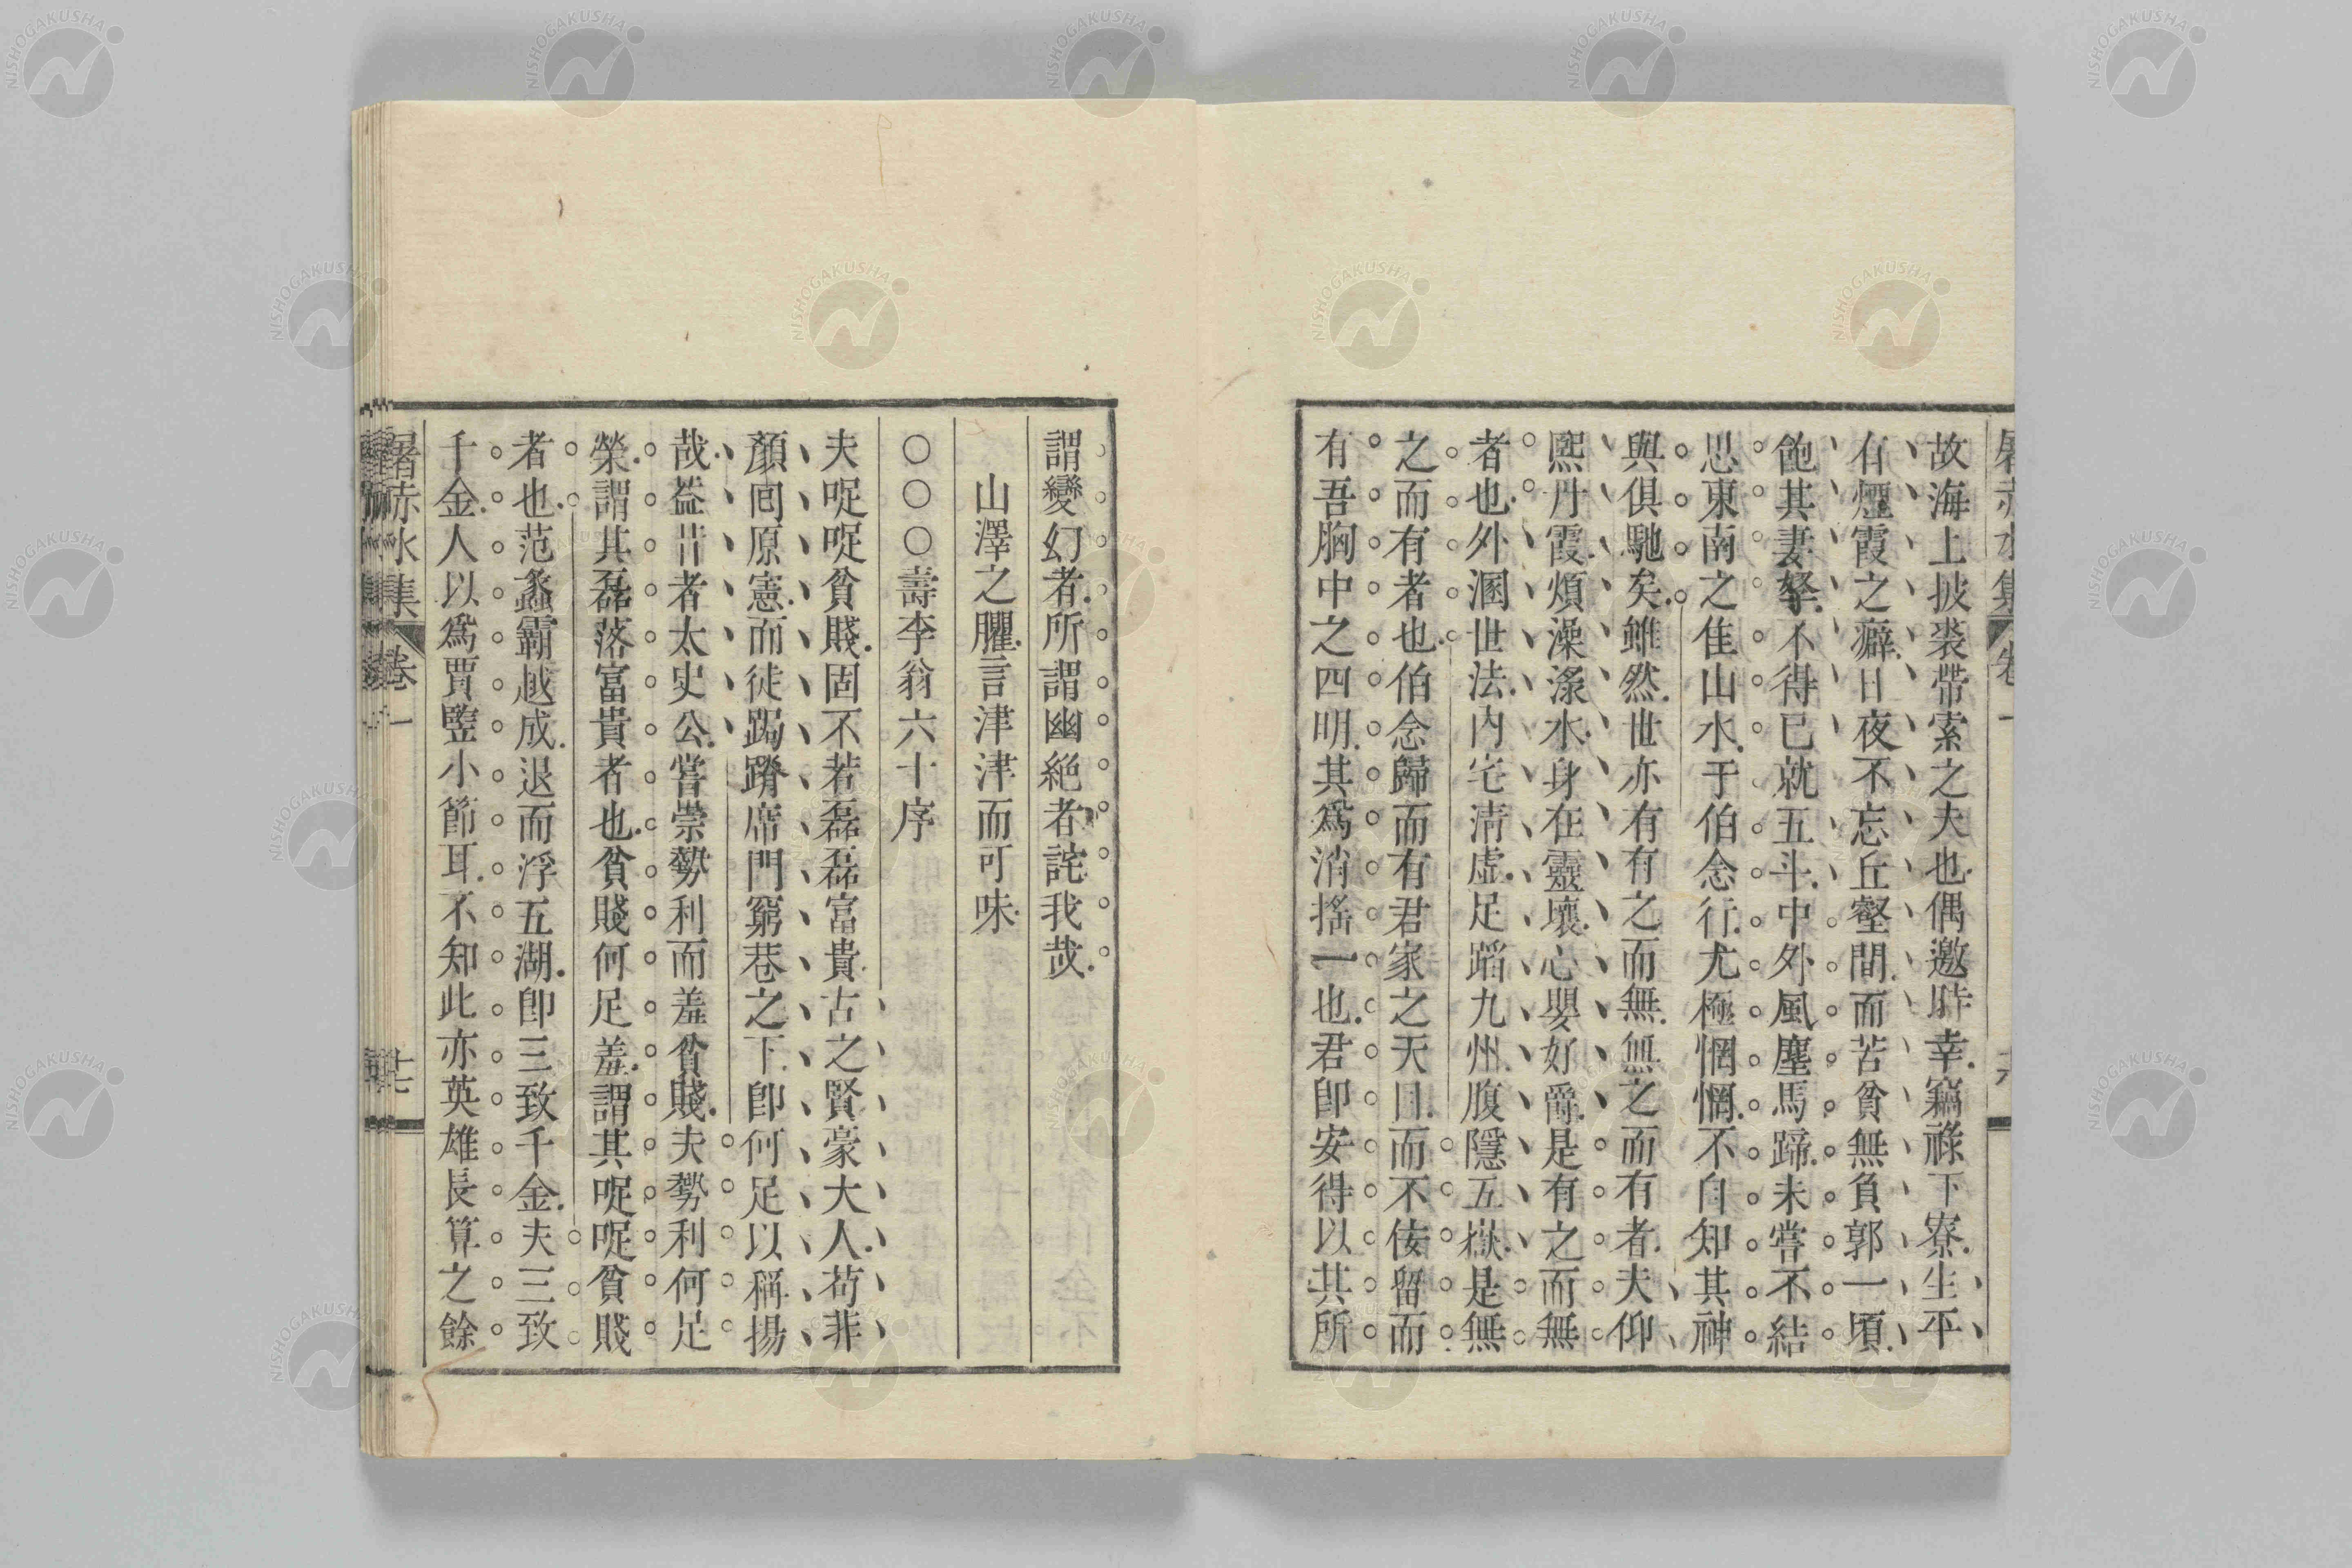 故海上披裘帶索之夫也偶邀時幸竊祿下寮生平
有煙霞之癖日夜不忘丘壑間而苦貧無負郭一頃
飽其妻孥不得已就五斗中外風塵馬蹄未嘗不結
思東南之佳山水于伯念行尤極惘惘不自知其神
與俱馳矣雖然世亦有有之而無無之而有者夫仰
熙丹霞煩澡濠水身在靈壤心嬰好爵是有之而無
者也外溷世法內宅清虛足蹈九州腹隱五嶽是無
之而有者也伯念歸而有君家之天目而不佞留而
有吾胸中之四明其爲消搖一也君卽安得以其所
謂變幻者所謂幽絕者詫我哉
山澤之臞言津津而可味
○○○壽李翁六十序
夫哫哫貧賤固不若磊磊富貴古之賢豪大人苟非
顏回原憲而徒跼蹐席門窮巷之下卽何足以稱揚
哉益昔者太史公嘗崇勢利而羞貧賤夫勢利何足
榮謂其磊落富貴者也貧賤何足羞謂其哫哫貧賤
者也范蠡霸越成退而浮五湖卽三致千金夫三致
千金人以爲賈豎小節耳不知此亦英雄長算之餘
屠赤水集
卷一
十七
NISHOGAKUSHA